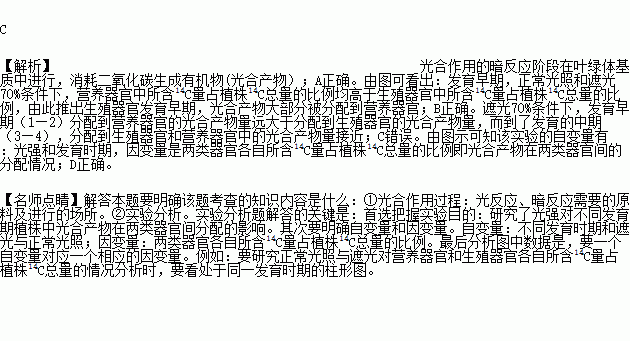 C
【解析】 光合作用的暗反应阶段在叶绿体基
质中进行，消耗二氧化碳生成有机物(光合产物）；A正确。由图可看出：发育早期，正常光照和遮光
70%条件下，营养器官中所含¹⁴C量占植株¹⁴C总量的比例均高于生殖器官中所含¹⁴C量占植株¹⁴C总量的比
例，由此推出生殖器官发育早期，光合产物大部分被分配到营养器官；B正确。遮光70%条件下，发育早
期（1—2）分配到营养器官的光合产物量远大于分配到生殖器官的光合产物量，而到了发育的中期
（3—4），分配到生殖器官和营养器官中的光合产物量接近；C错误。由图示可知该实验的自变量有
：光强和发育时期，因变量是两类器官各自所含¹⁴C量占植株¹⁴C总量的比例即光合产物在两类器官间的
分配情况；D正确。
【名师点睛】解答本题要明确该题考查的知识内容是什么：①光合作用过程：光反应、暗反应需要的原
料及进行的场所。②实验分析。实验分析题解答的关键是：首选把握实验目的：研究了光强对不同发育
期植株中光合产物在两类器官间分配的影响。其次要明确自变量和因变量。自变量：不同发育时期和遮
光与正常光照；因变量：两类器官各自所含¹⁴C量占植株¹⁴C总量的比例。最后分析图中数据是，要一个
自变量对应一个相应的因变量。例如：要研究正常光照与遮光对营养器官和生殖器官各自所含¹⁴C量占
植株¹⁴C总量的情况分析时，要看处于同一发育时期的柱形图。